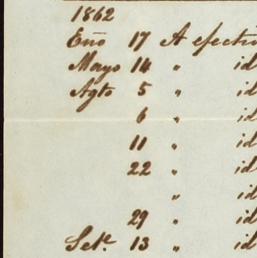 1862
Eno 17 A efectiv
Mayo 14 " id
Agto 5 " id
6 " id
11 " id
22 " id
" id
29 " id
Sete. 13 " id